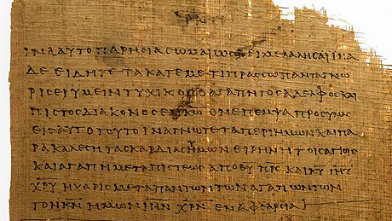 ΙΝΑ ΑΥΤΟ ΠΑΡΗϹΙΑϹΩΜΑΙ ΩϹ ΔΕΙ ΜΕ ΛΑΛΗϹΑΙ ΙΝΑ
ΔΕ ΕΙΔΗΤΕ ΤΑ ΚΑΤ ΕΜΕ ΤΙ ΠΡΑϹϹΩ ΠΑΝΤΑ ΓΝΩ
ΡΙϹΕΙ ΥΜΕΙΝ ΤΥΧΙΚΟϹ Ο ΑΓΑΠΗΤΟϹ ΑΔΕΛΦΟϹ ΚΑΙ
ΠΙϹΤΟϹ ΔΙΑΚΟΝΟϹ ΕΝ ΚΩ ΟΝ ΕΠΕΜΨΑ ΠΡΟϹ ΥΜΑϹ
ΕΙϹ ΑΥΤΟ ΤΟΥΤΟ ΙΝΑ ΓΝΩΤΕ ΤΑ ΠΕΡΙ ΗΜΩΝ ΚΑΙ ΠΑ
ΡΑΚΑΛΕϹΗ ΤΑϹ ΚΑΡΔΙΑϹ ΥΜΩΝ ΕΙΡΗΝΗ ΤΟΙϹ ΑΓΙΟΙϹ
ΚΑΙ ΑΓΑΠΗ ΜΕΤΑ ΠΙϹΤΕΩϹ ΑΠΟ ΘΥ ΠΡϹ ΚΑΙ ΚΥ ΙΗΥ
ΧΡΥ Η ΧΑΡΙϹ ΜΕΤΑ ΠΑΝΤΩΝ ΤΩΝ ΑΓΑΠΩΝΤΩΝ
ΤΟΝ ΚΝ ΗΜΩΝ ΙΗΝ ΧΡΝ ΕΝ ΑΦΘΑΡϹΙΑ